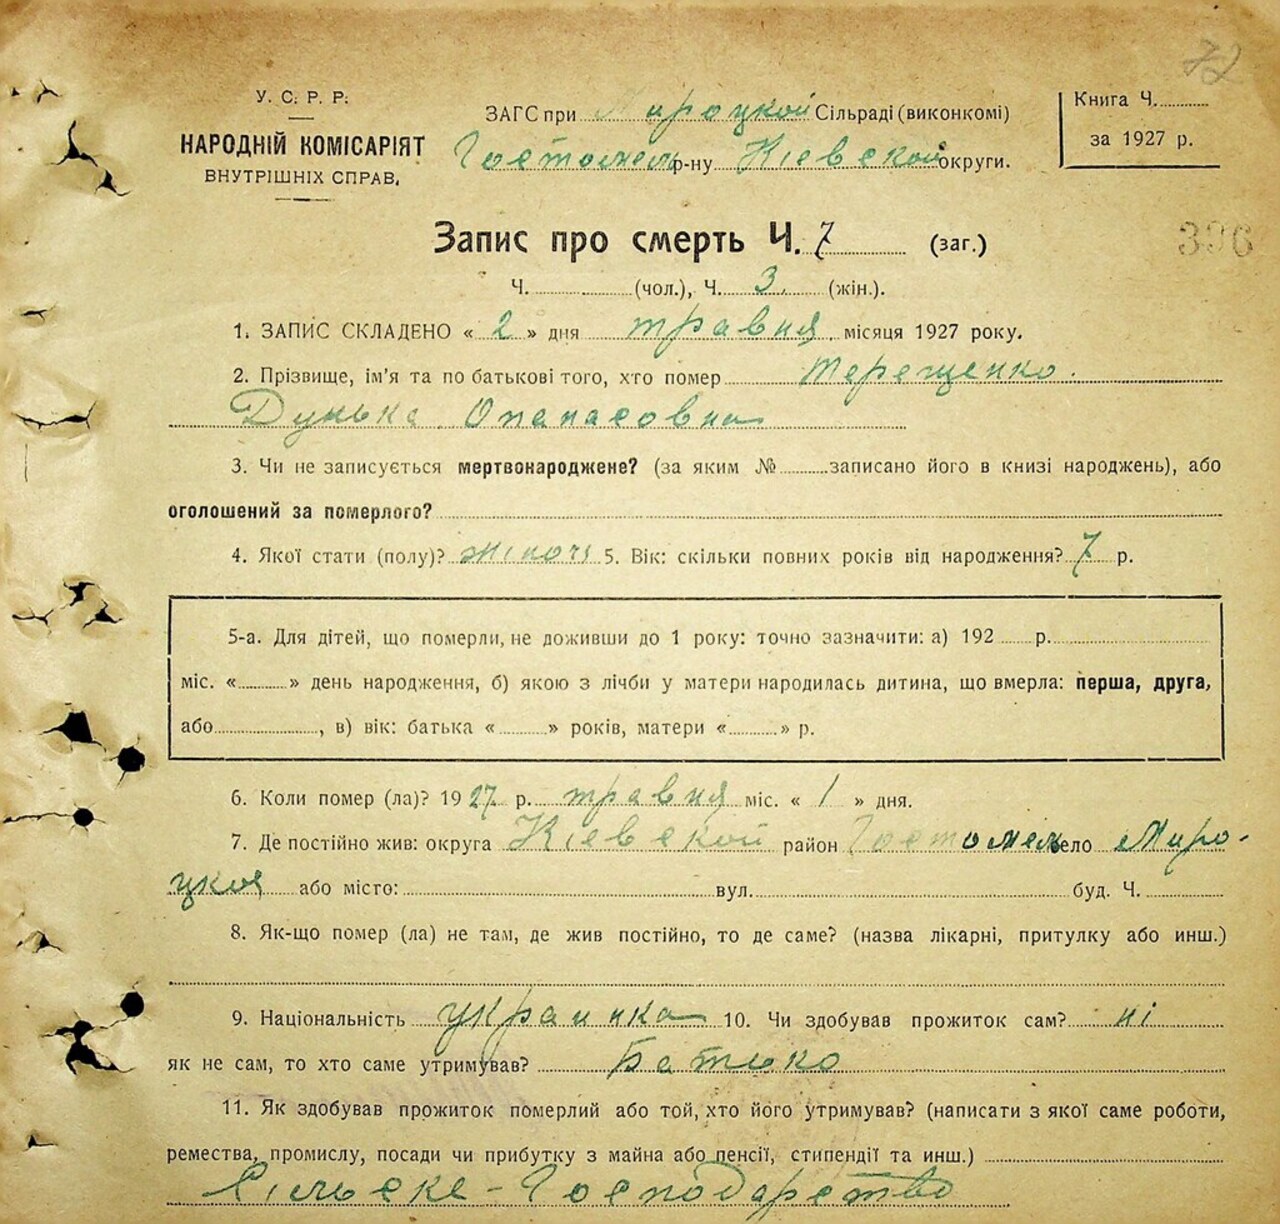 72
У. С. Р. Р.
НАРОДНІЙ КОМІСАРІЯТ
ВНУТРІШНІХ СПРАВ.
ЗАГС при Мироцкой Сільраді (виконкомі)
Гостомель р-ну Кіевской округи.
Книга Ч.
за 1927 р.
396
Запис про смерть Ч. 7 (заг.)
Ч. (чол.), Ч. 3. (жін.).
1. ЗАПИС СКЛАДЕНО « 2 » дня травня місяця 1927 року.
2. Прізвище, ім'я та по батькові того, хто помер Терещенко.
Дунька Опанасовна
3. Чи не записується мертвонароджене? (за яким № записано його в книзі народжень), або
оголошений за померлого?
4. Якої стати (полу)? жіночі 5. Вік: скільки повних років від народження? 7 р.
5-а. Для дітей, що померли, не доживши до 1 року: точно зазначити: а) 192 р.
міс. « » день народження, б) якою з лічби у матери народилась дитина, що вмерла: перша, друга,
або , в) вік: батька « » років, матери « » р.
6. Коли помер (ла)? 1927 р. травня міс. « 1 » дня.
7. Де постійно жив: округа Кіевской район Гостомель село Миро-
цкоя або місто: вул. буд. Ч.
8. Як-що помер (ла) не там, де жив постійно, то де саме? (назва лікарні, притулку або инш.)
9. Національність украинка 10. Чи здобував прожиток сам? ні
як не сам, то хто саме утримував? Батько
11. Як здобував прожиток померлий або той, хто його утримував? (написати з якої саме роботи,
ремества, промислу, посади чи прибутку з майна або пенсії, стипендії та инш.)
Сільске-Господарство